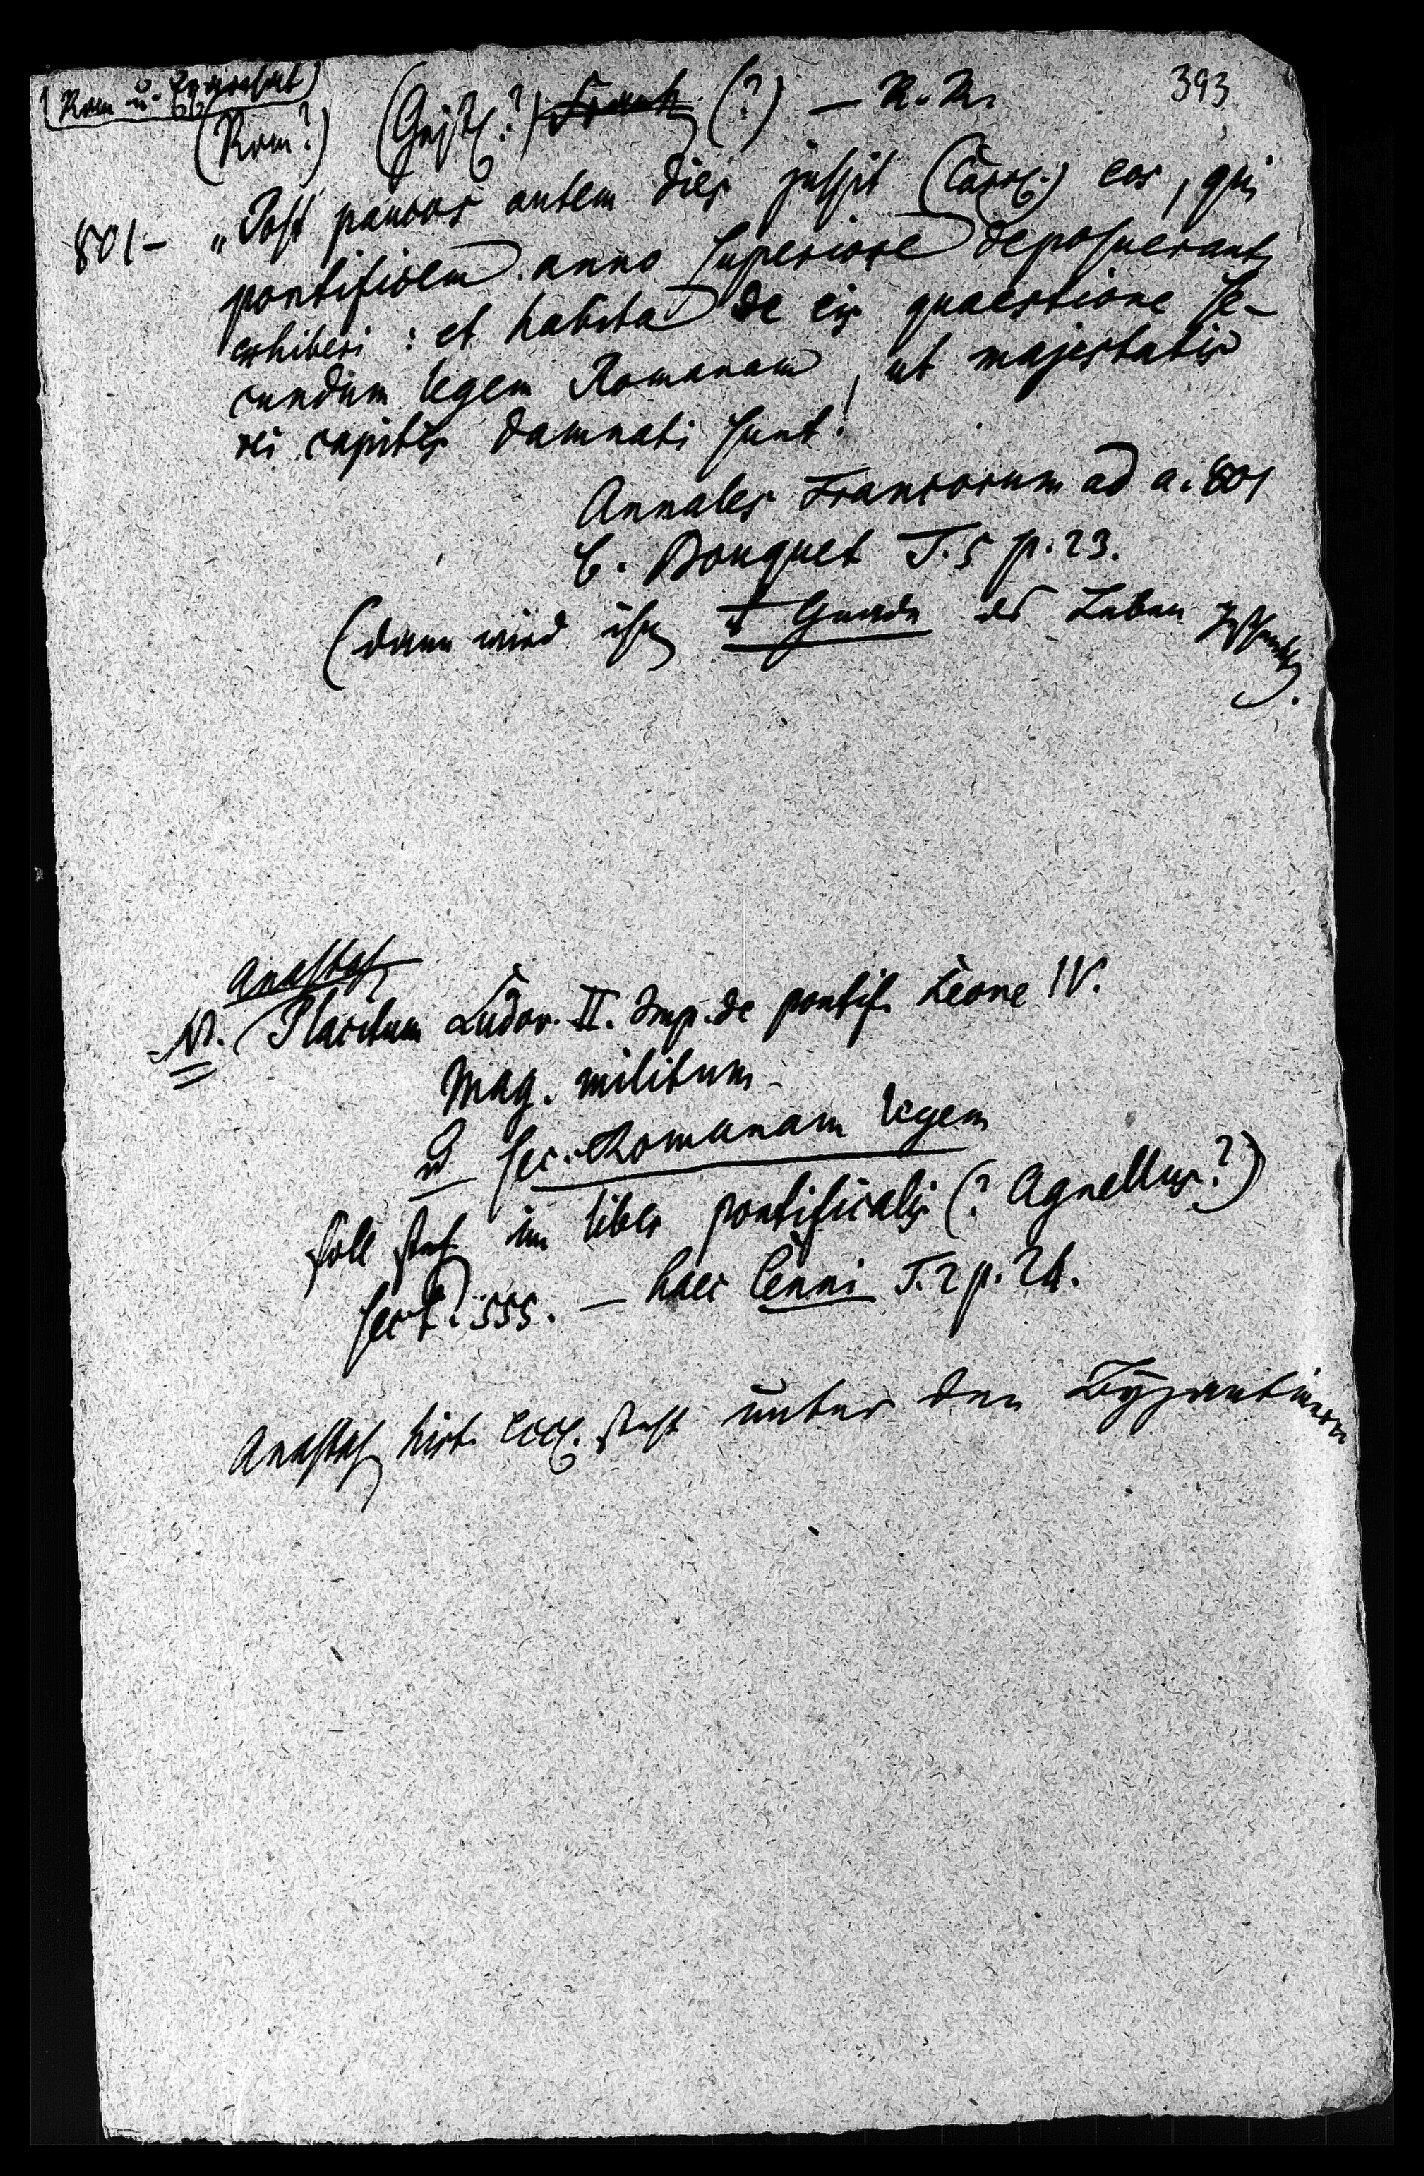 393
(Rom u. Exarchat)
(Rom?) (?) — R. R.
801 — „Post paucos autem dies jussit (Carol.) eos, qui
pontificem anno superiore deposuerant,
exhiberi: et habita de eis quaestione se-
cundum legem Romanam, ut majestatis
rei capitis damnati sunt.
Annales Francorum ad a. 801
b. Bouquet T. 5 p. 23.
(dann wird ihnen Gnade des Lebens
Anastas.
N. Placitum Ludov. II. Imp. de pontif. Leone IV.
Mag. militum
sec. Romanam legem
soll stehen im liber pontificalis (? Agnellus?)
sect. 555. — haec Cenni T. 2 p. 24.
Anastas. hist. eccl. steht unter den Byzantinern